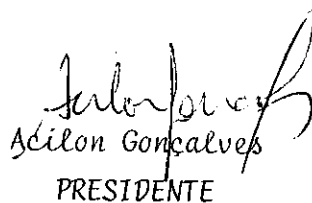 Acilon Gonçalves
PRESIDENTE